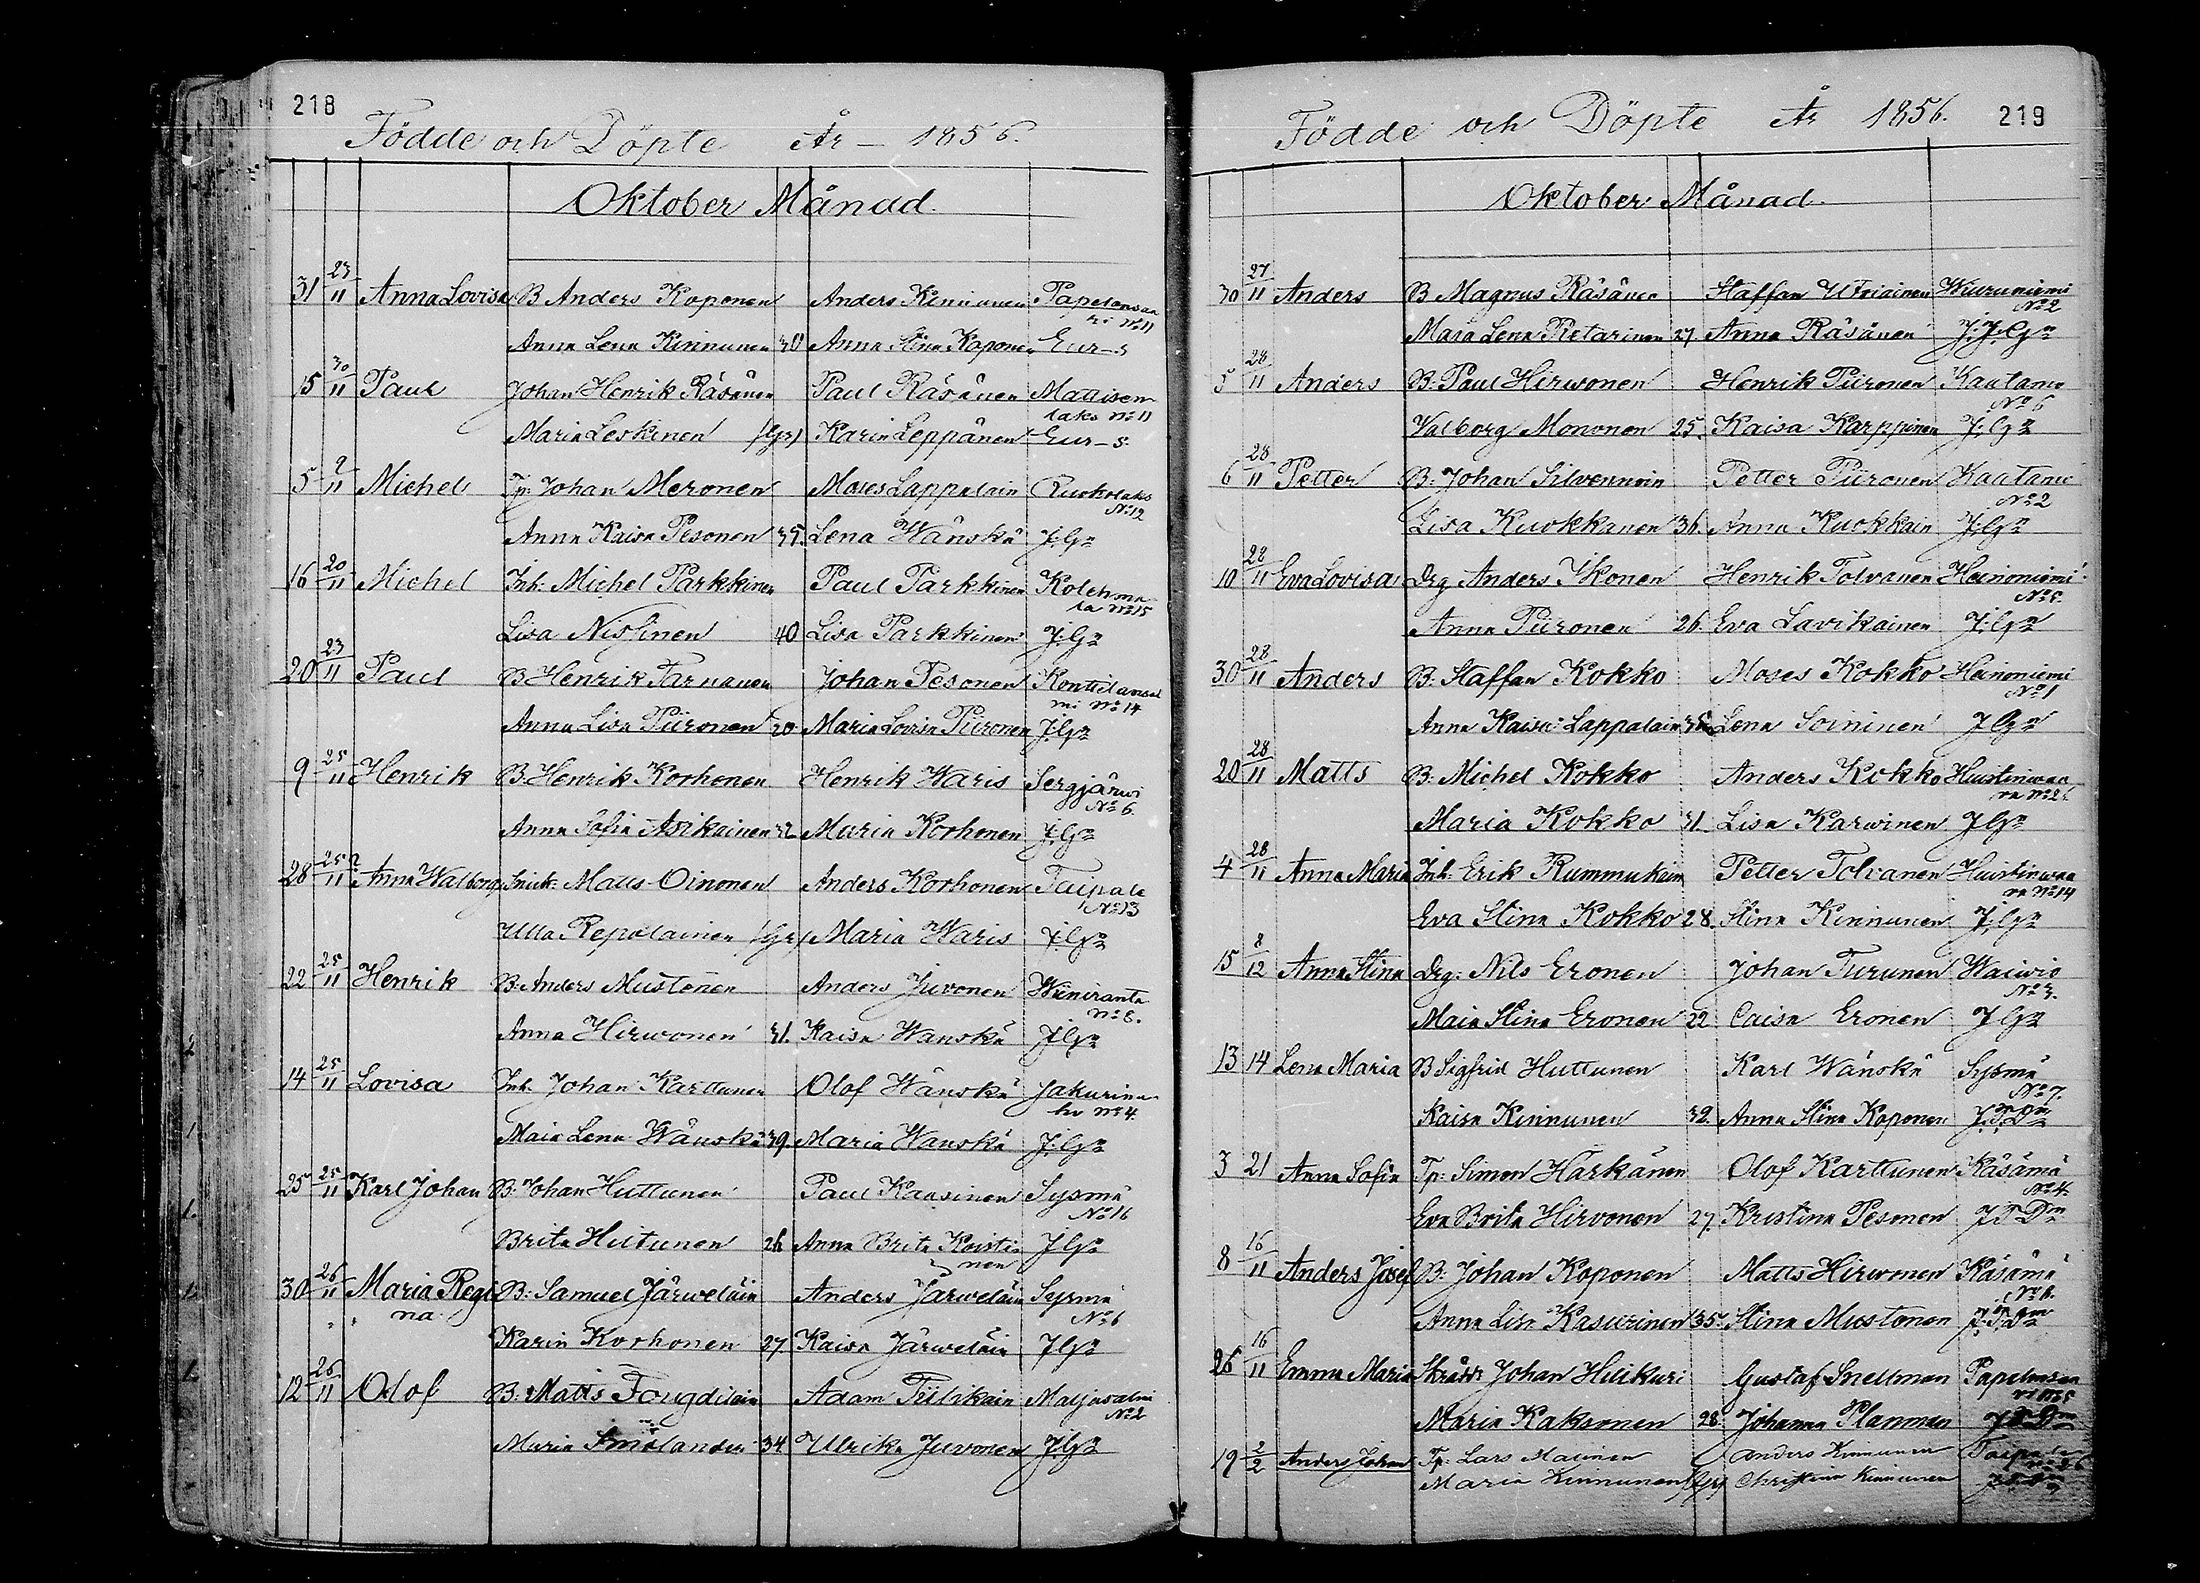 218
Födde och Döpte År – 1856.
Oktober Månad.
31 23/11 Anna Lovisa B Anders Koponen Anders Kinnunen Papelonsaa
ri No 11
Anna Lena Kinnunen 30 Anna Stina Koponen Eur–s
15 30/11 Paul Johan Henrik Räsänen Paul Räsänen Mattisen
laks No 11
Maria Leskinen (Gr) Karin Leppänen Eur–s
5 9/11 Michel Tp. Johan Meronen Moses Lappalain Ruokolaks
No 12
Anna Kaisa Pesonen 35. Lena Wänskä J.Gn
16 20/11 Michel Inh. Michel Parkkinen Paul Parkkinen Kolehma
la No 15
Lisa Nissinen 40 Lisa Parkkinen J.Gn
20 23/11 Paul B Henrik Tarnanen Johan Pesonen Konttilansal
mi No 14
Anna Lisa Piironen 20 Maria Lovisa Piironen J.Gn
9 25/11 Henrik B. Henrik Korhonen Henrik Waris Sergjärwi
No 6
Anna Sofia Asikainen 32 Maria Korhonen J.Gn
28 25/11 Anna Walborg Snick. Matts Oinonen Anders Korhonen Taipale
No 13
Ulla Repolainen (Gr) Maria Waris J.Gn
22 25/11 Henrik B. Anders Mustonen Anders Juvonen Wiiniranta
No 8.
Anna Hirwonen 31. Kaisa Wanskä J.Gn
14 25/11 Lovisa Inh. Johan Karttunen Olof Wänskä Jakurina
ho No 4
Maia Lena Wänskä 39. Maria Wanskä J.Gn
25 25/11 Karl Johan B. Johan Huttunen Paul Kaasinen Sysmä
No 16
Brita Hiitunen 26 Anna Brita Koisti J.Gn
nen
30 26/11 Maria Regi B. Samuel Järweläin Anders Järweläin Sysmä
na No 6
Karin Korhonen 27 Kaisa Järweläin J.Gn
12 26/11 Olof B. Matts Fougdilain Adam Tiilikain Matjosalmi
No 2
Maria Smolander 34 Ulrika Juvonen J.Gn
2
1.
1.
1.
1.
Födde och Döpte År 1856. 219
Oktober Månad.
30 27/11 Anders B Magnus Räsänen Staffan Utriainen Wuruniemi
No 2
Maia Lena Pietarinen 27 Anna Räsänen J.J.Gn
5 28/11 Anders B. Paul Hirwonen Henrik Piironen Kaatamo
No 6
Valborg Mononen 25. Kaisa Karppinen J.Gn
6 28/11 Petter B. Johan Silvennoin Petter Piironen Kaatamo
No 2
Lisa Kuokkanen 36. Anna Kuokkain J.Gn
10 28/11 Eva Lovisa Drg Anders Ikonen Henrik Tolvanen Heinoniemi
No 5.
Anna Piironen 26. Eva Lavikainen J.Gn
30 28/11 Anders B. Staffan Kokko Moses Kokko Heinoniemi
No 1
Anna Kaisa Lappalain Lena Soininen J.Gn
20 28/11 Matts B. Michel Kokko Anders Kokko Huistinwaa
ra No 2
Maria Kokko 31. Lisa Karwinen J.Gn
4 28/11 Anna Maria Inh. Erik Rummukain Petter Tolvanen Huistinwaa
ra No 14
Eva Stina Kokko 28. Stina Kinnunen J.Gn
15 8/12 Anna Stina Drg. Nils Eronen Johan Turunen Waiwio
No 3.
Maia Stina Eronen 22 Caisa Eronen J.Gn
13 14 Lena Maria B Sigfrid Huttunen Karl Wänskä Sysmä
No 7.
Kaisa Kinnunen 32. Anna Stina Koponen J.T.Dm
3 21 Anna Sofia Tp. Simon Härkänen Olof Karttunen Käsämä
No 4.
Eva Brita Hirvonen 27 Kristina Pesonen J.T.Dm
8 16/11 Anders Josef B. Johan Koponen Matts Hirwonen Käsämä
No 8.
Anna Lisa Kasurinen 35. Stina Mustonen J.T.Dm
26 16/11 Emma Maria Skrädd. Johan Hilikuri Gustaf Snellman Papelonsaa
ri No 5
Maria Kaksonen 28. Johanna Planman J.T.Dm
19 2/2 Anders Johan Tp. Lars Malinen Anders Kinnunen Taipale
Maria Kinnunen (Gr) Christina Kinnunen